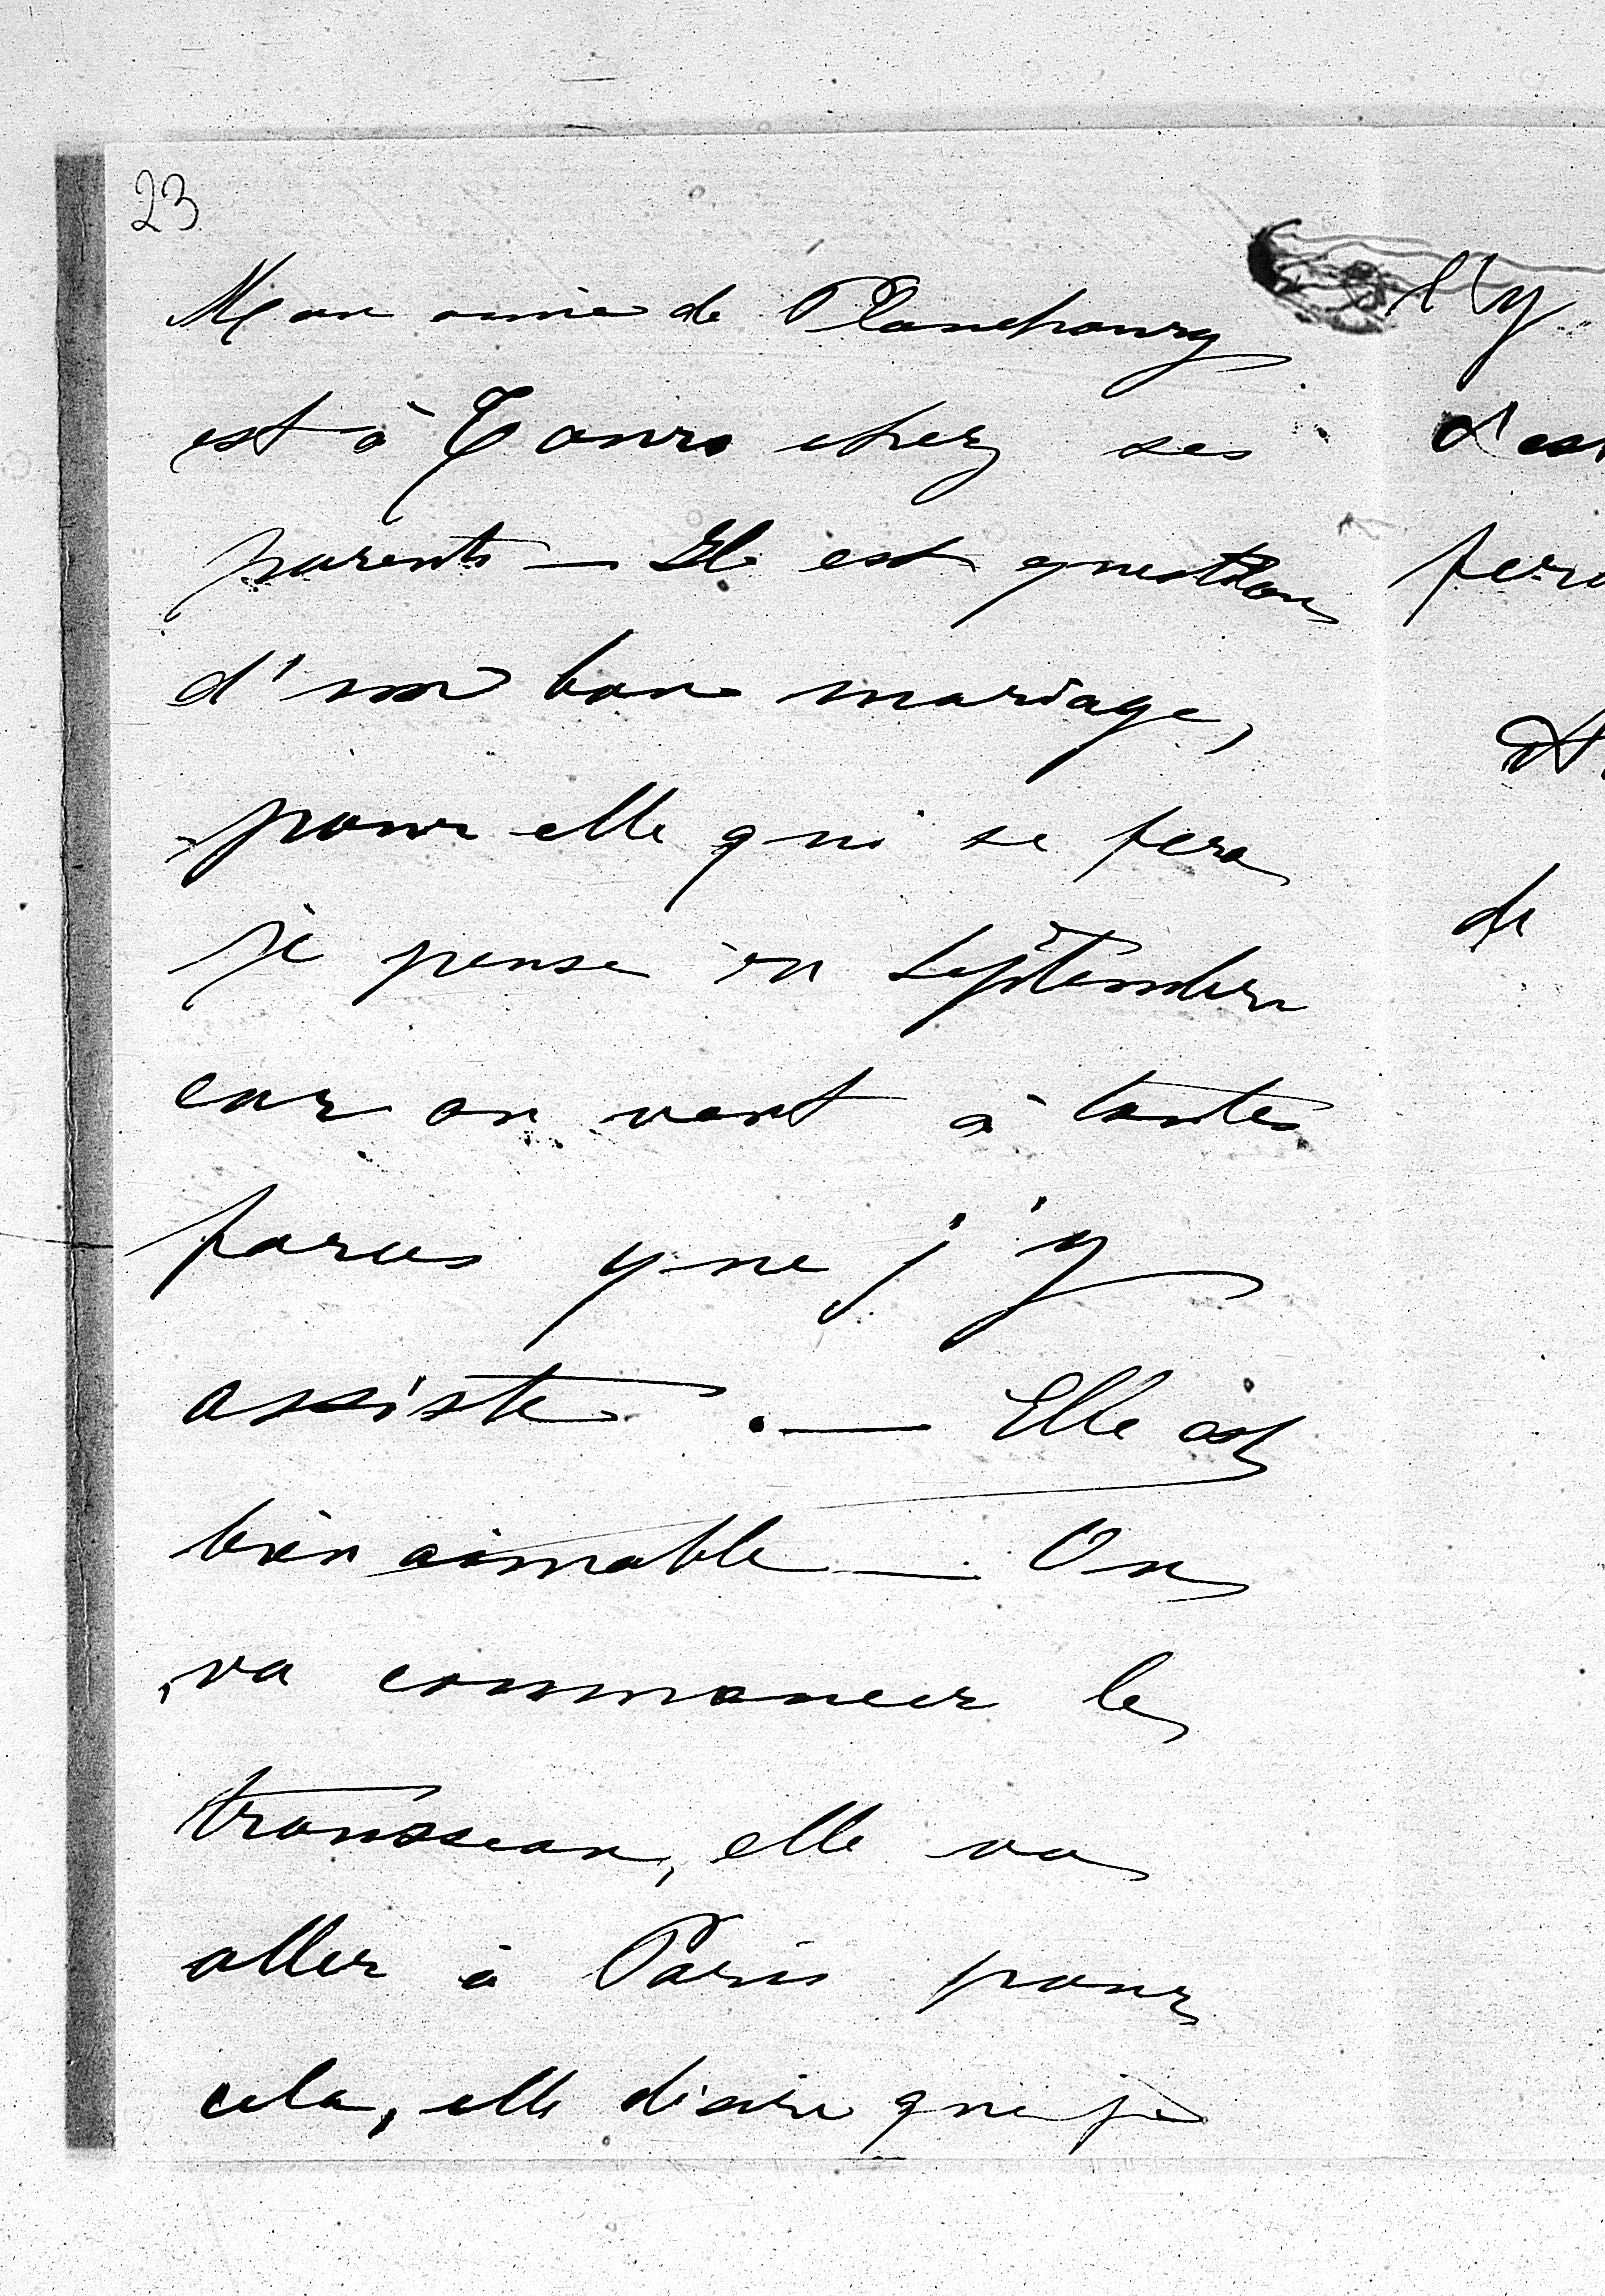 23
Mon amie de Planchoury
est à Tours chez ses
parents — Il est question
d'un bon mariage,
pour elle qui se fera
je pense en Septembre
car on veut à toutes
forces que j'y
assiste. — Elle est
bien aimable — On
va commencer le
trousseau, elle va
aller à Paris pour
cela, elle désire que je
l'y
de